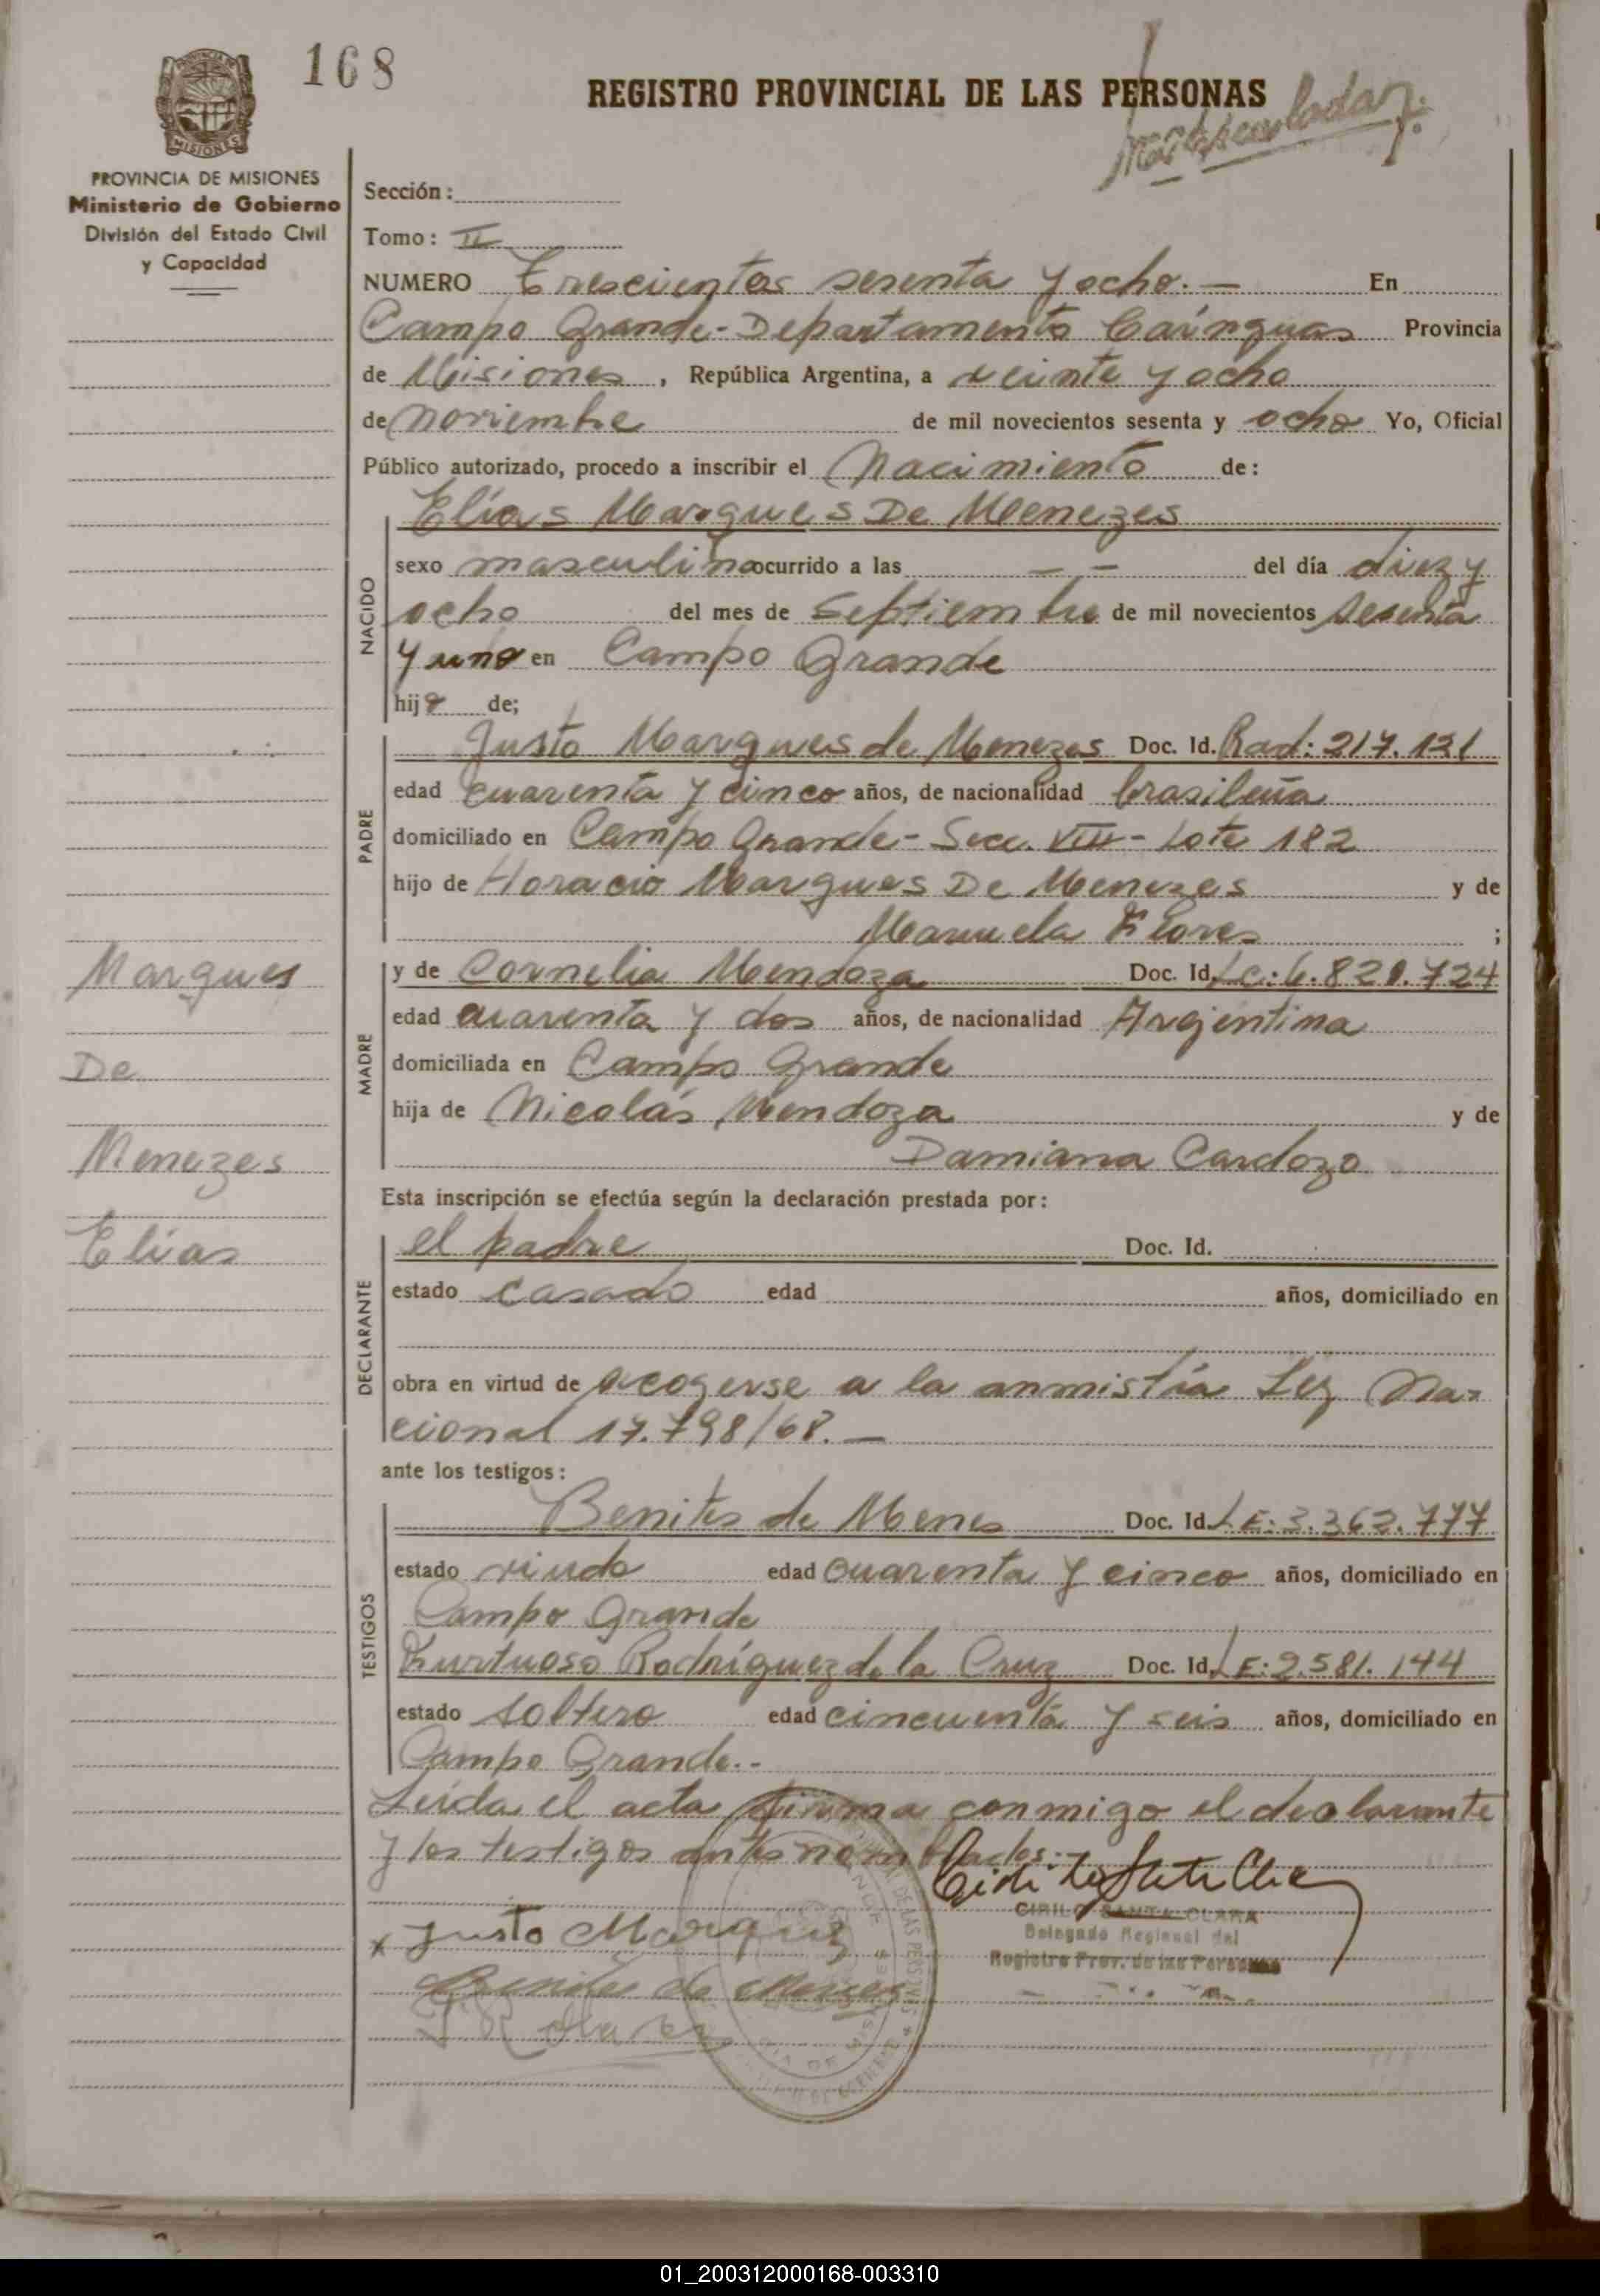 168
REGISTRO PROVINCIAL DE LAS PERSONAS
MISIONES
PROVINCIA DE MISIONES
Ministerio de Gobierno
División del Estado Civil
y Capacidad
Sección:
Tomo: II
NUMERO Trescientos sesenta y ocho.— En
Campo Grande-Departamento Cainguas Provincia
de Misiones, República Argentina, a veinte y ocho
de noviembre de mil novecientos sesenta y ocho Yo, Oficial
Público autorizado, procedo a inscribir el Nacimiento de:
Elías Marques De Menezes
NACIDO
sexo masculino ocurrido a las — — del día diez y
ocho del mes de Septiembre de mil novecientos sesenta
y uno en Campo Grande
hijo de;
PADRE
Justo Marques de Menezes Doc. Id. Rad: 217.121
edad cuarenta y cinco años, de nacionalidad brasileña
domiciliado en Campo Grande- Secc. VIII- Lote 182
hijo de Horacio Marques De Menezes y de
Manuela Flores ;
MADRE
y de Cornelia Mendoza Doc. Id. Lc: 6.820.724
edad cuarenta y dos años, de nacionalidad Argentina
domiciliada en Campo Grande
hija de Nicolás Mendoza y de
Damiana Cardozo
Marques
De
Menezes
Elías
Esta inscripción se efectúa según la declaración prestada por:
DECLARANTE
el padre Doc. Id.
estado casado edad años, domiciliado en
obra en virtud de acogerse a la anmistía Ley Na-
cional 17.798/68.—
ante los testigos:
TESTIGOS
Benites de Menes Doc. Id. LE: 3.362.777
estado viudo edad cuarenta y cinco años, domiciliado en
Campo Grande
Furtuoso Rodríguez de la Cruz Doc. Id. LE: 2.581.144
estado soltero edad cincuenta y seis años, domiciliado en
Campo Grande.-
Leída el acta firma conmigo el declarante
y los testigos antes nombrados:
CIRILO SANTA CLARA
Delegado Regional del
Registro Prov. de las Personas
x Justo Marques
Benites de Menes
01_200312000168-003310